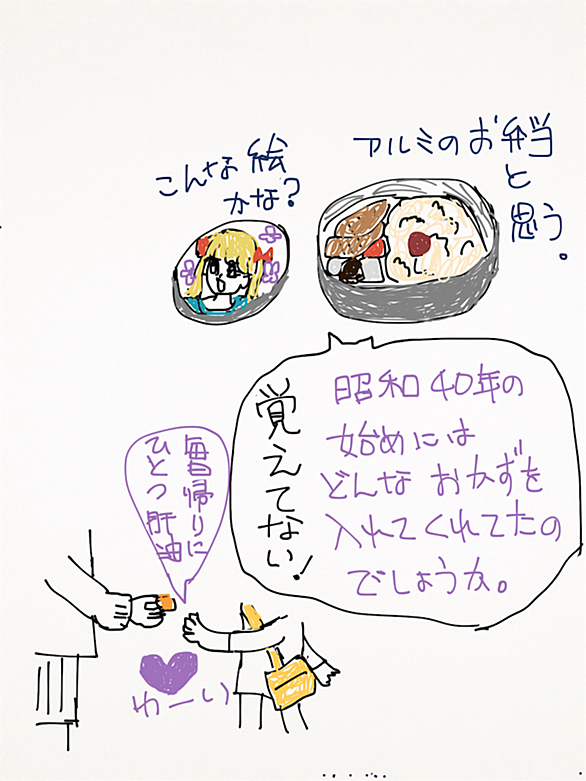 こんな絵
かな?
アルミのお弁当
と
思う。
昭和40年の
始めには
どんなおかずを
入れてくれてたの
でしょうか。
覚えてない!
毎日帰りに
ひとつ肝油
わーい